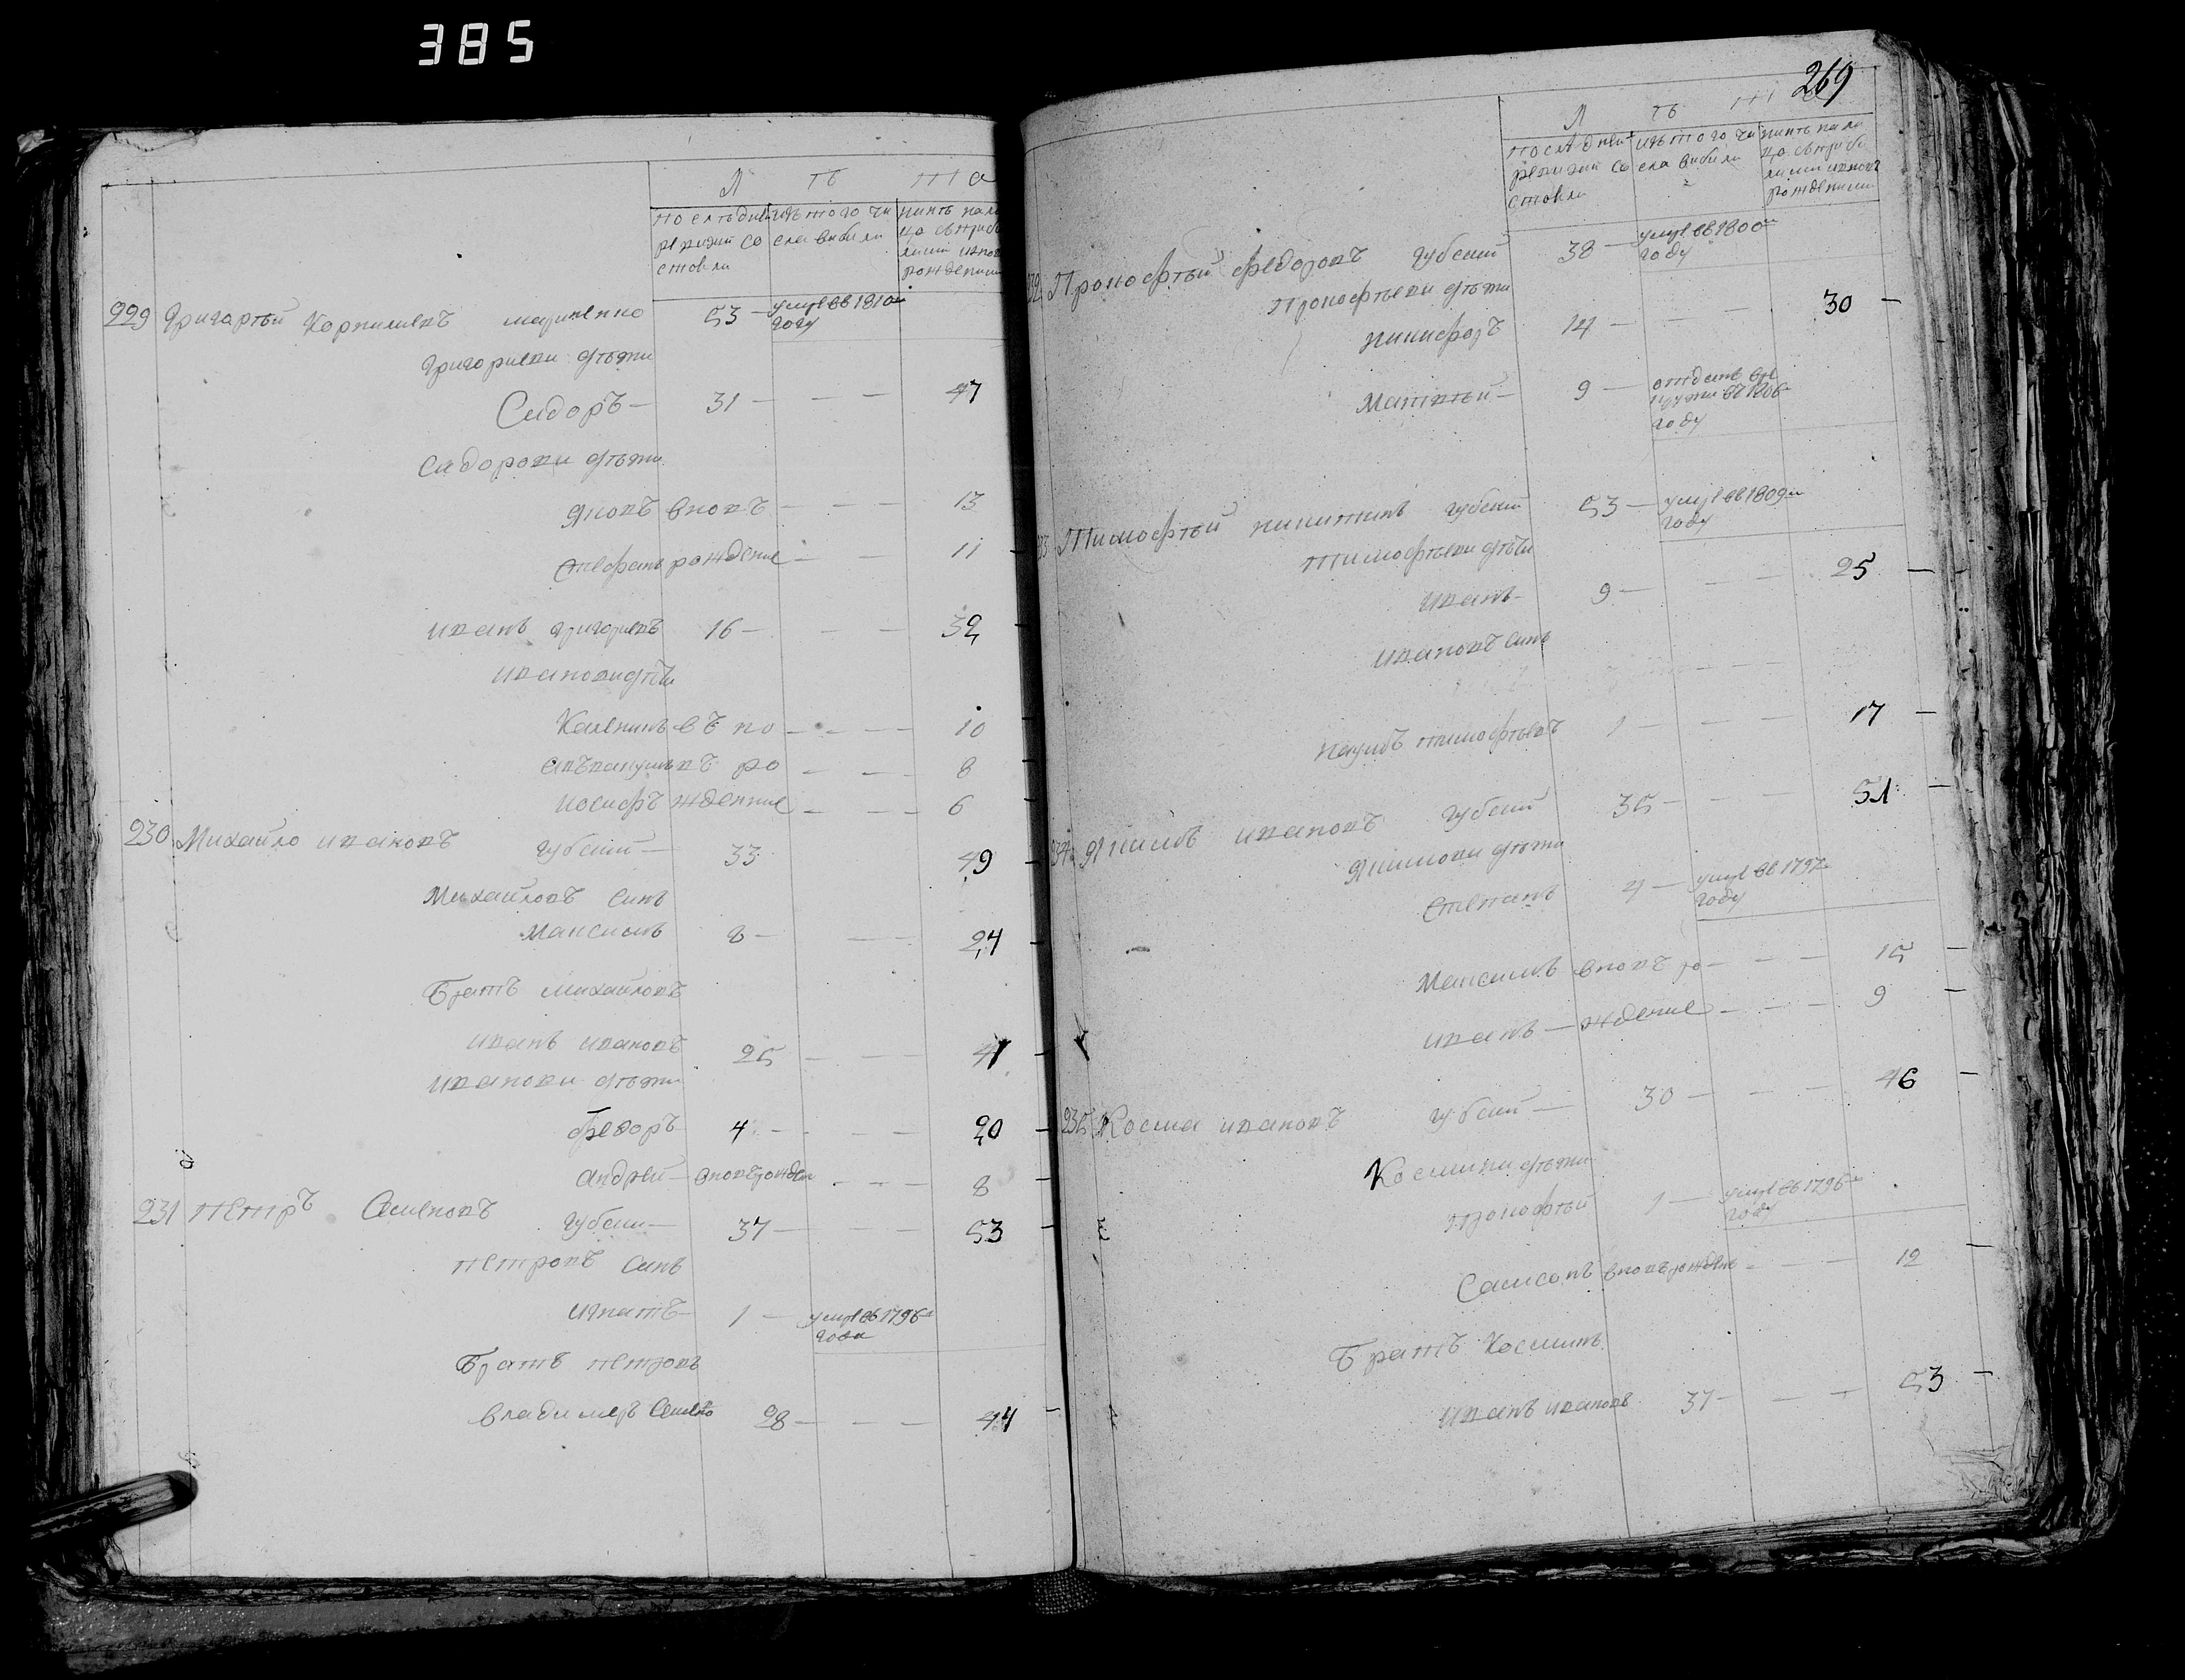 385
Л ѣ т а
Послѣдней ревизии состояли
изъ того числа выбыли
ныне налицо съ прибылими и новорожденими
229 Григорѣй Корнилиевъ мариненко 53 — умре въ 1810м году
Григориеви дѣти
Сидоръ — 31 — — — 47
Сидорови дѣти
Яковъ вновъ — — — 13
Стефанъ рождение — — 11
Иванъ Григориевъ 16 — — — 32
Ивановидѣти
Каленикъ въ но — — — 10
въ ро — — — 8
Иосифъ ждение — — — 6
230 Михайло Ивановъ Губский — 33 49
Михайловъ синъ
Максимъ 8 — — — 24
Братъ Михайловъ
Иванъ Ивановъ 25 — — — 41
Иванови дѣти
Федоръ 4 — — — 20
Андрей — вновърожден — — — 8
231 Петръ Семеновъ Губски — 37 — — — 53
Петровъ синъ
Игнатъ — 1 — умре въ 1796м года
Братъ Петровъ
Владимеръ Семено 28 — — — 44
269
Л ѣ т
Послѣдней ревизии состояли
изъ того числа вибили
нинѣ налицо съ прибилими и новорожденими
Прокофѣй Федоровъ Губский 38 — умре въ 1800м году
Прокофѣеви дѣти
Никифоръ 14 — — — 30 —
Матвѣй — 9 — отданъ в рекрути въ 1806 году
Тимофѣй Никитинъ Губский 53 — умре въ 1809м году
Тимофѣеви дѣти
Иванъ — 9 — — — 25 —
Ивановъ синъ
Наумъ Тимофѣевъ 1 — — — 17 —
Якимъ Ивановъ Губский 35 — — — 51 —
Якимови дѣти
Степанъ 4 — умре въ 1797м году
Максимъ вновъ ро — — — 15 —
Иванъ — ждение — — — 9 —
235 Косма Ивановъ Губский — 30 — — — 46 —
Космини дѣти
Прокофѣй 1 — умре въ 1796м году
Самсонъ вновърожден — — — 12 —
Братъ Косминъ
Иванъ Ивановъ 37 — — — 53 —